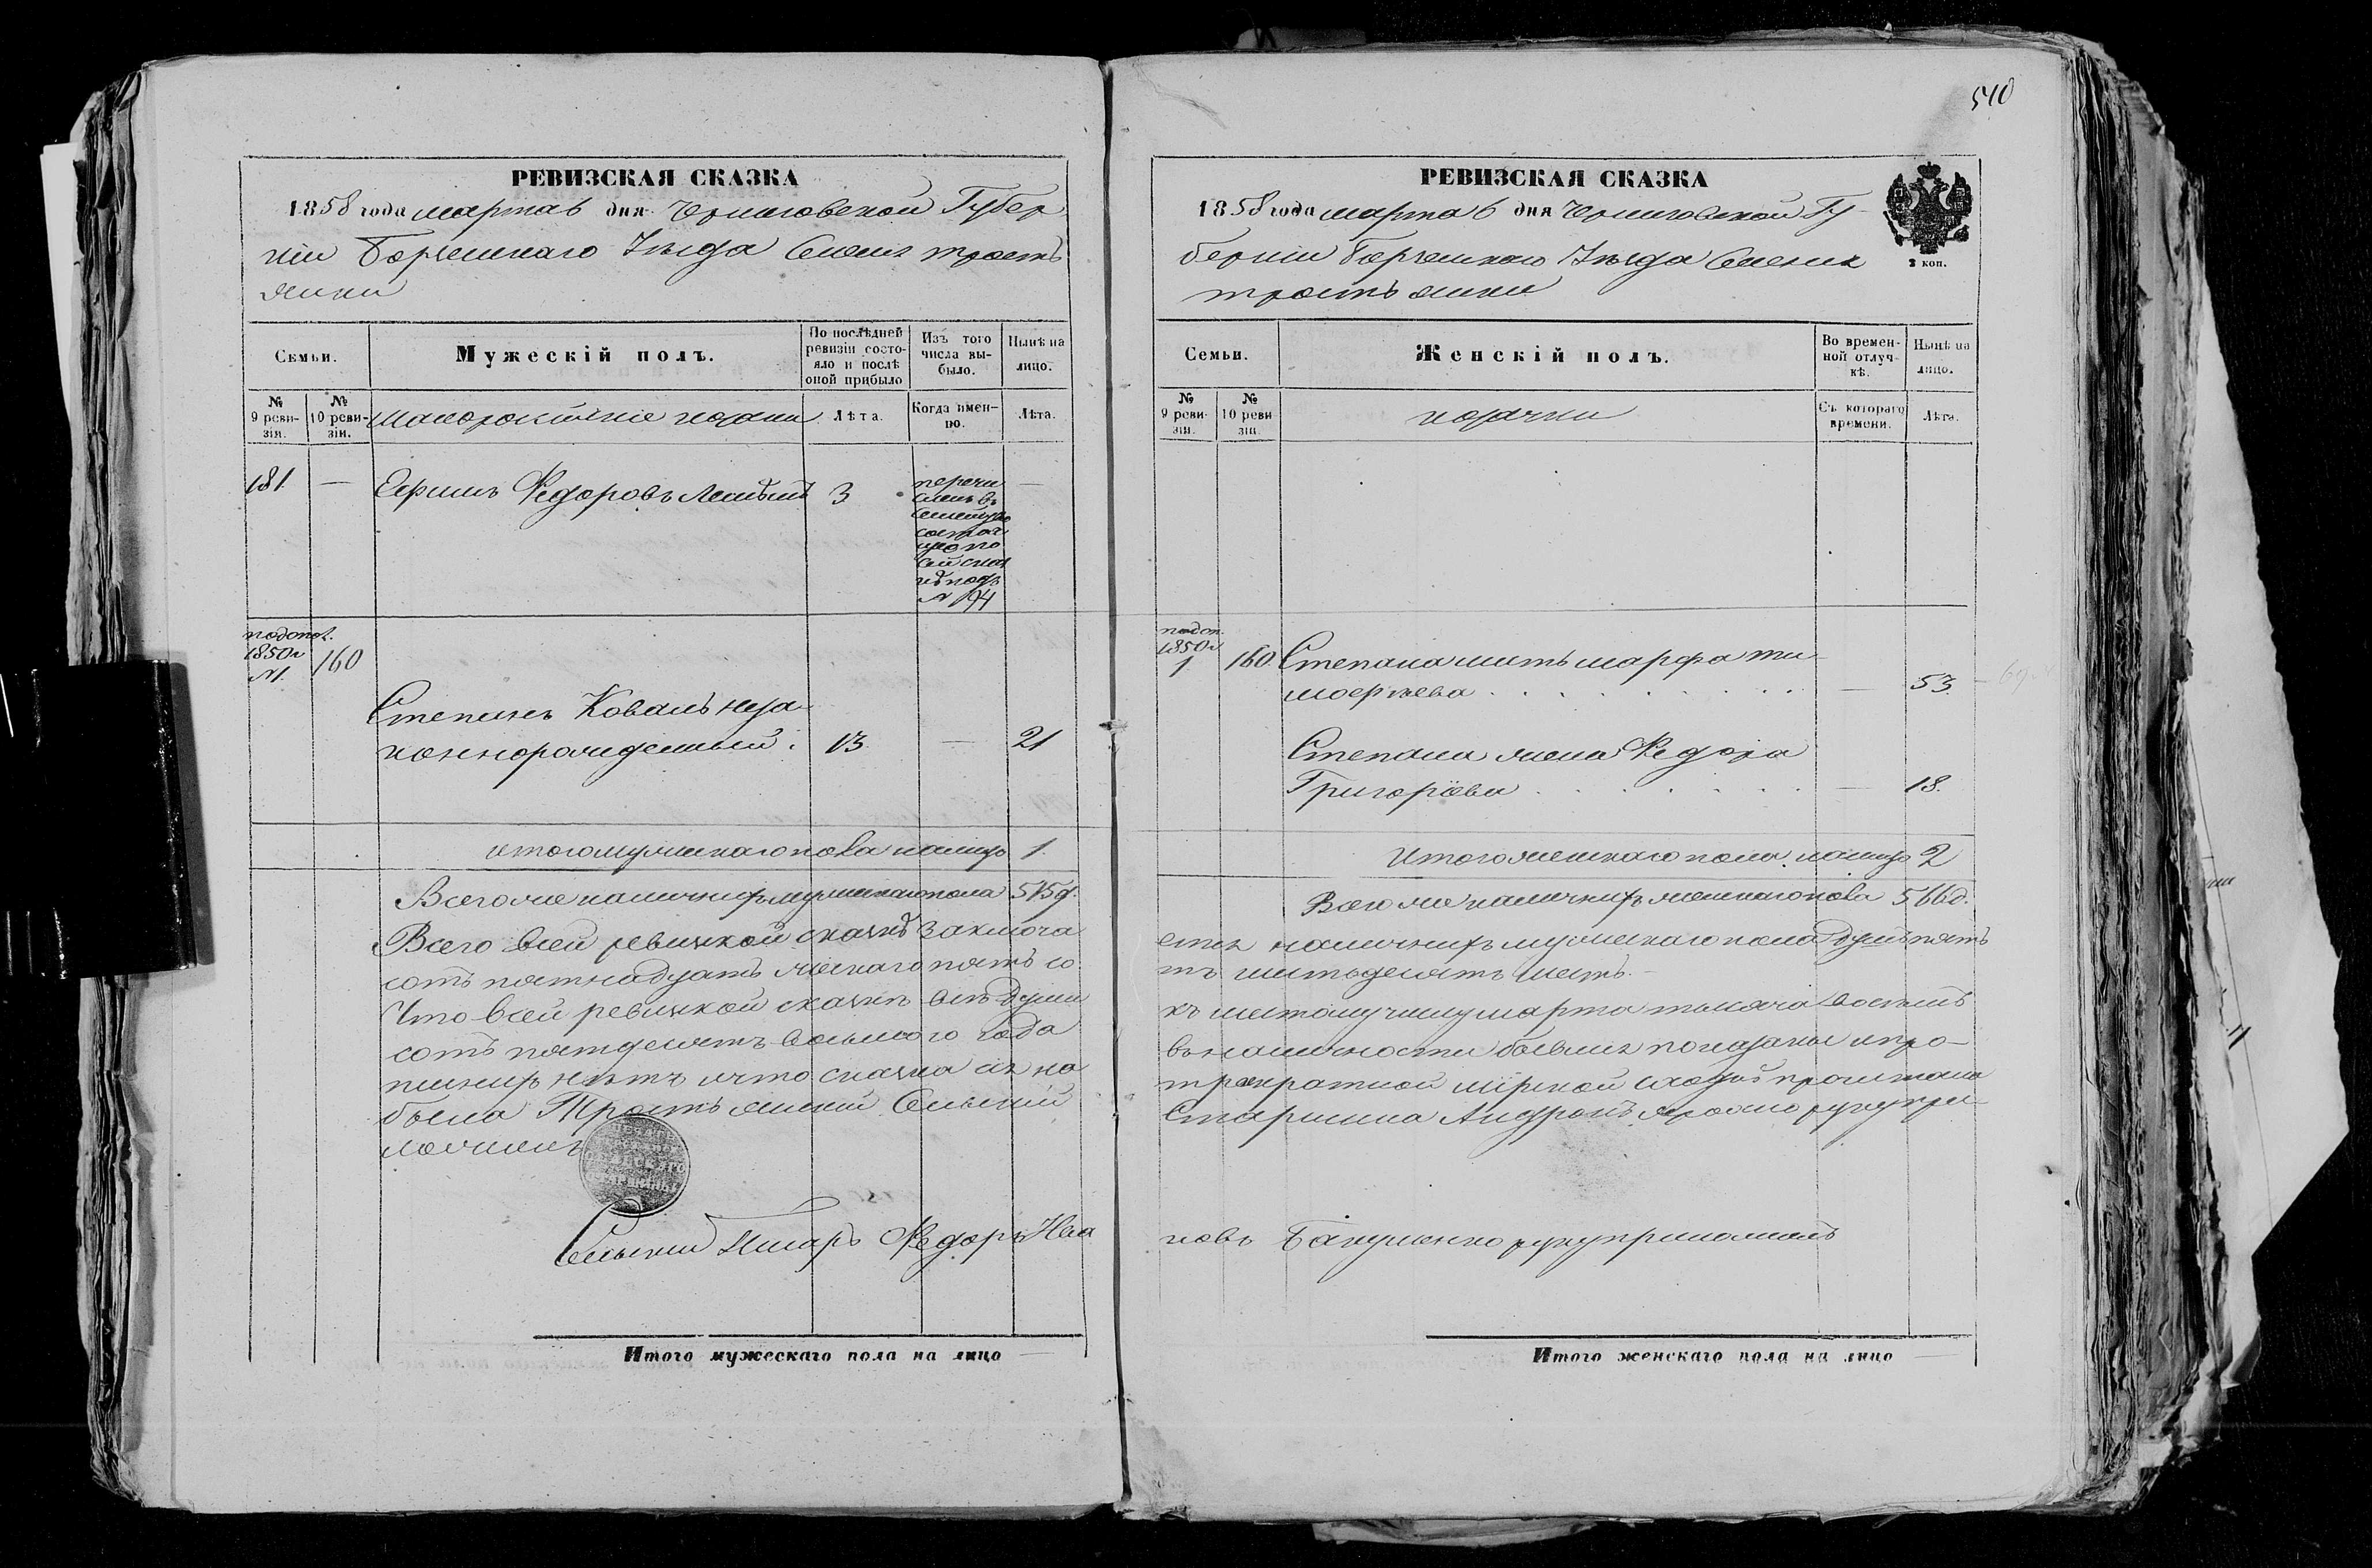 РЕВИЗСКАЯ СКАЗКА
1858 года марта 6 дня Черниговской Губер
ніи Борзенскаго Уезда Селенія Трость
янки
Семьи.
Мужескій полъ.
По послѣдней ревизіи состояло и послѣ оной прибыло
Изъ того числа выбыло.
Нынѣ на лицо.
№ 9 ревизіи.
№ 10 ревизіи.
Малороссійскіе козаки
Лѣта.
Когда именно.
Лѣта.
181. — Ефимъ Федоровъ 3 —
перечи
сленъ въ
семейство
состоя
щее по
сей сказ
кѣ подъ
№ 194
подопол.
1850 г
№ 1. 160
Степанъ Коваль неза
коннорожденный. 13. — 21
Итого мужескаго пола налицо 1.
Всего же наличныхъ мужескаго пола 515 д.
Всего въ сей ревизской сказкѣ заключа
сотъ пятнадцать женскаго пятьсо
Что въ сей ревизской сказкѣ всѣ души
сотъ пятдесятъ восьмого года
писныхъ нѣтъ и что сказка сія на
была Тростянскій Сельскій
ложилъ
Сельскій Писарь Федоръ Ива
Итого мужескаго пола на лицо —
510
РЕВИЗСКАЯ СКАЗКА
1858 года марта 6 дня Черниговской Гу-
берніи Борзенскаго Уезда Селенія
Тростьянки
2 коп.
Семьи.
Женскій полъ.
Во временной отлучкѣ.
Нынѣ на лицо.
№ 9 ревизіи.
№ 10 ревизіи
козачки
Съ котораго времени.
Лѣта.
подоп.
1850 г
1. 160. Степана мать Марфа Ти
мофеева — 53.
Степана жена Федора
Григоріева — 18.
Итого женскаго пола налицо 2
Всего же наличныхъ женскаго пола 566 д.
ется наличныхъ мужескаго пола душъ пять
тъ шестьдесятъ шесть.
къ шестому числу марта тысяча восемь
въ наличности бывшія показаны и про-
трократной мірской сходкѣ прочитана
Старшина Андрей руку при
новъ Бакуменко руку приложилъ
Итого женскаго пола на лицо —